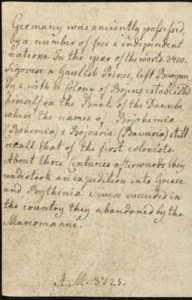 Germany was anciently possessed
by a number of free & independent
nations. In the year of the world 3400
Sigovese a Gaulish Prince, left Burgun
dy & with a Colony of Bojens establishd
himself on the Bank of the Danube
where the names of Bojohemia
(Bohemia) & Bojoaria (Bavaria) still
recall that of the first colonists.
About three Centuries afterwards they
undertook an expedition into Greece
and Bythinia & were succeeded in
the country they abandoned by the
Marcomanni.
A. M. 3725.